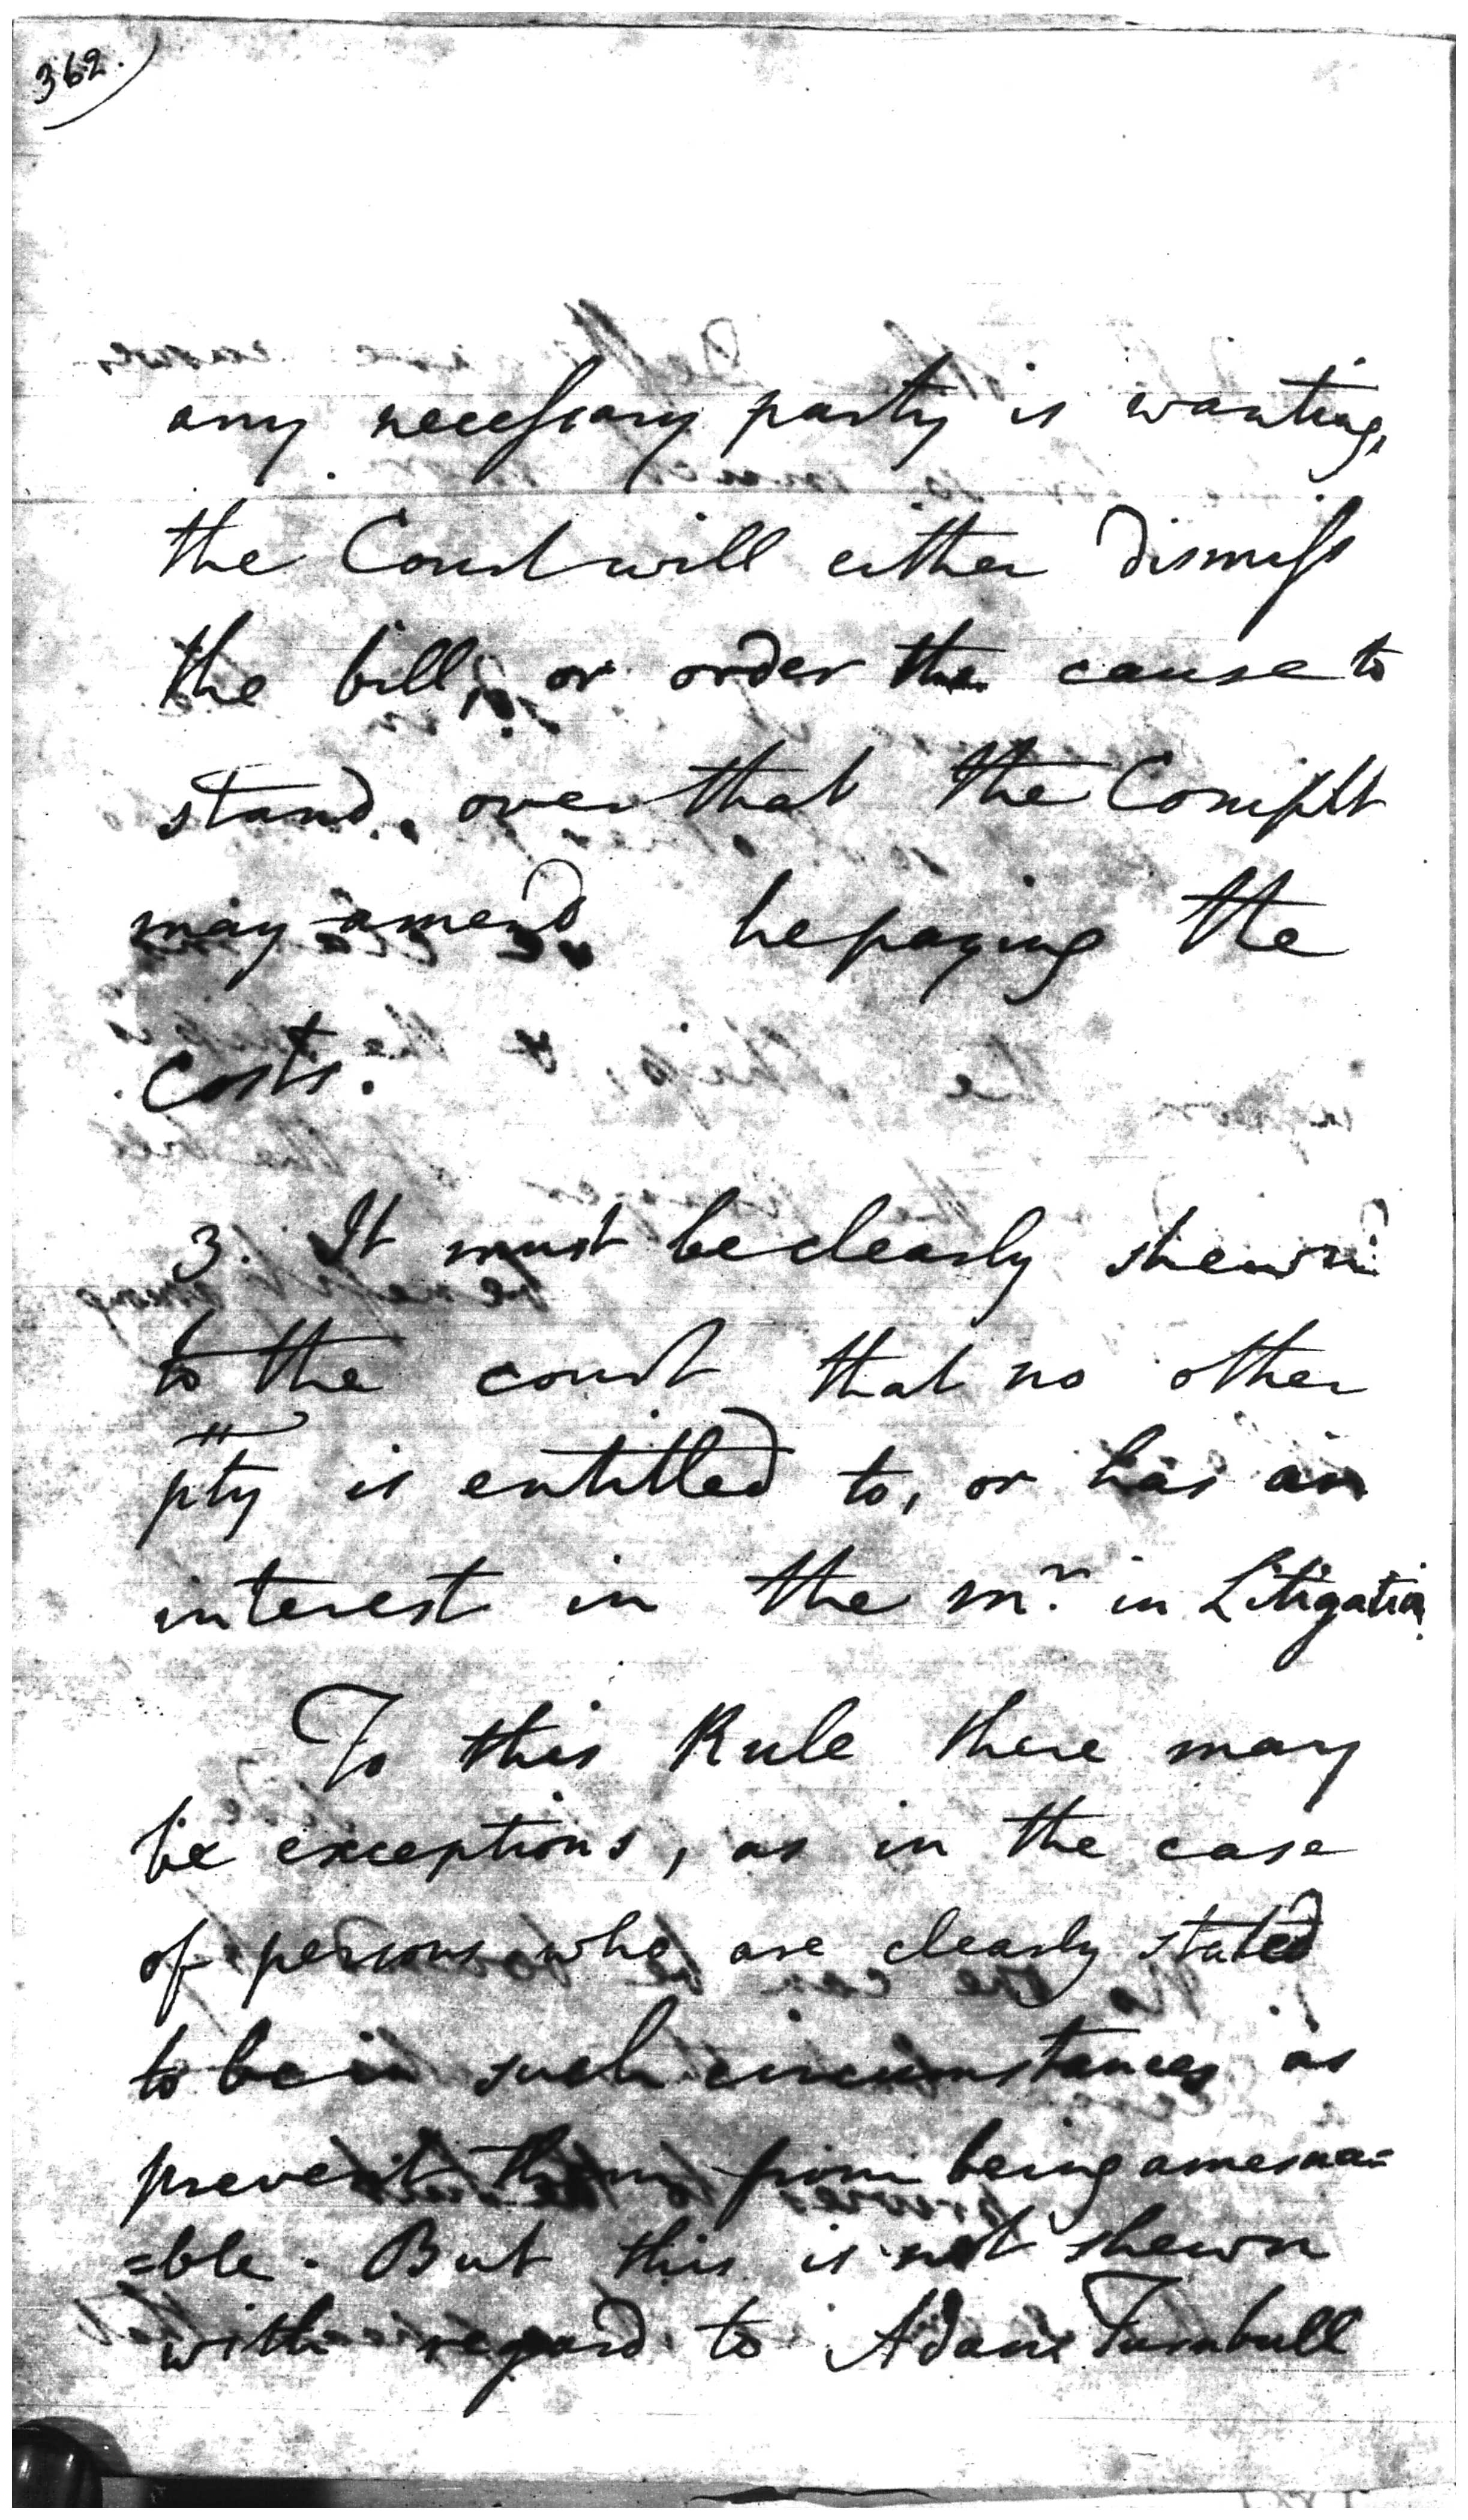 362.
any necessary party is wanting,
the Court will either dismiss
the bill, or order the cause to
stand over that the Complt
may amend he paying the
Costs.
3. It must be clearly shewn
to the court that no other
pty is entitled to, or has an
interest in the mr. in Litigation.
To this Rule there may
be exceptions, as in the case
of persons who are clearly stated
to be in such circumstances as
prevent them from being amena=
=ble. But this is not shewn
with regard to Adam Turnbull